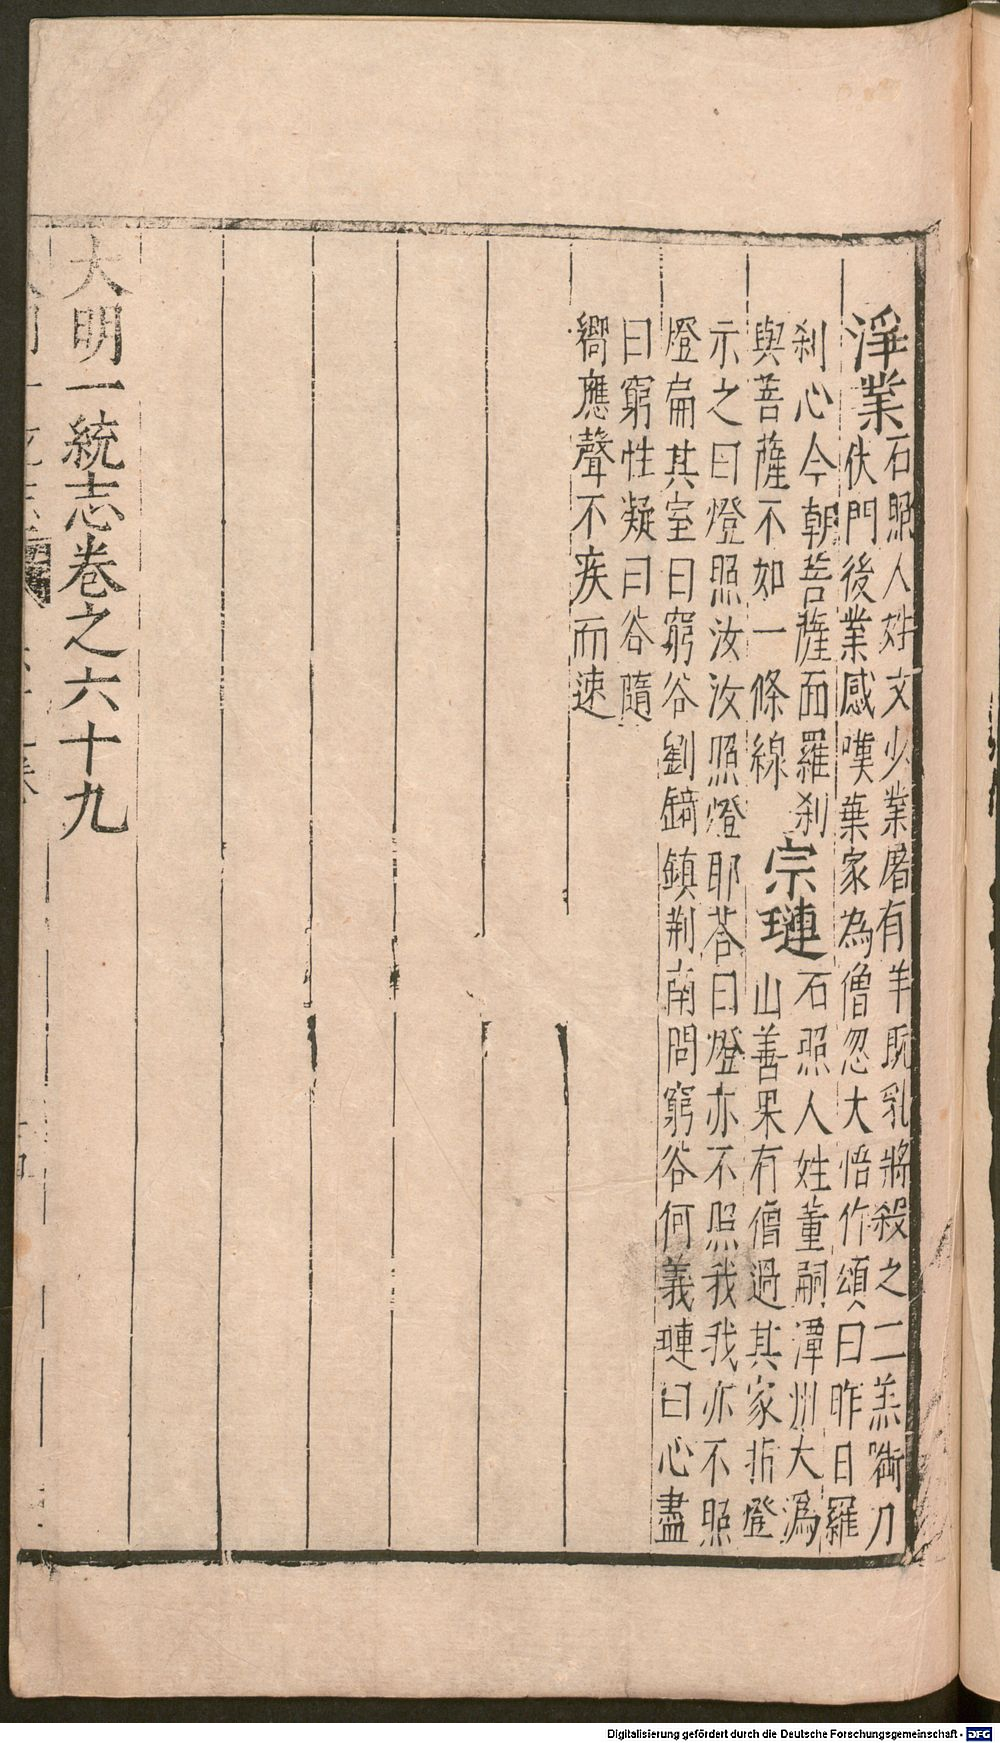 淨業
石照人姓文少業屠有羊旣乳將殺之二羔啣刀
伏門後業感嘆棄家為僧忽大悟作頌曰昨日羅
刹心今朝菩薩面羅刹
與菩薩不如一條線
宗璉
石照人姓董嗣潭州大潙
山善果有僧過其家指燈
示之曰燈照汝汝照燈耶荅曰燈亦不照我我亦不照
燈扁其室曰窮谷劉錡鎮荆南問窮谷何義璉曰心盡
曰窮性凝曰谷隨
嚮應聲不疾而速
大明一統志卷之六十九
Digitalisierung gefördert durch die Deutsche Forschungsgemeinschaft - DFG